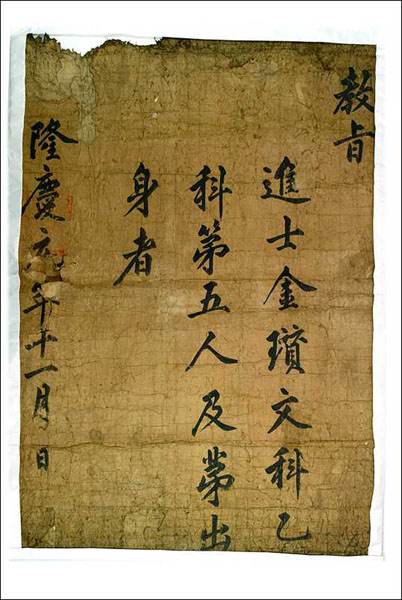 教旨
進士金瓚文科乙
科第五人及第出
身者
隆慶元年十一月 日